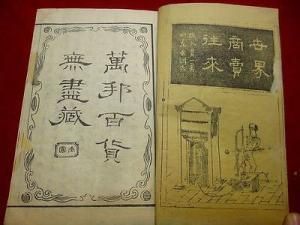 世界
商賣
往來
萬邦百貨
無盡藏